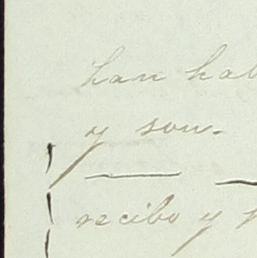 han hab
y son.
recibo y